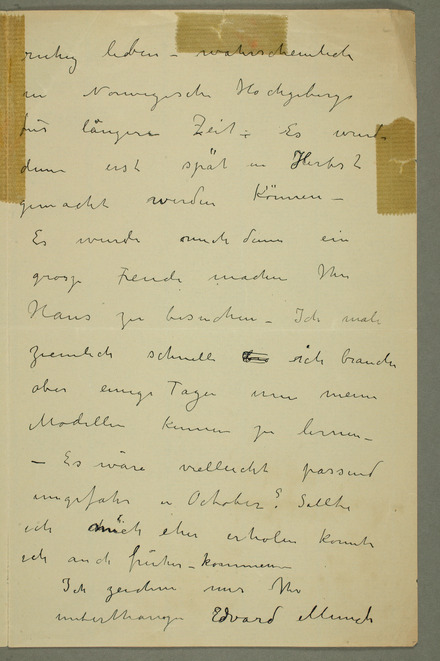 ruhig leben – wahrscheinlich
in Norwegische Hochgebirge
für längere Zeit. Es wurde
dann erst spät in Herbst
gemacht werden können –
Es wurde mich dann ein
grosze Freude machen Ihr
Haus zu besuchen – Ich male
ziemlich schnell ich brauche
aber einige Tager um meine
Modellen kennen zu lernen –
– Es wäre vielleicht passend
ungefähr in October? Sollte
ich mich eher erholen konnte
ich auch früher kommen –
Ich zeichne mir Ihr
unterthänige Edvard Munch